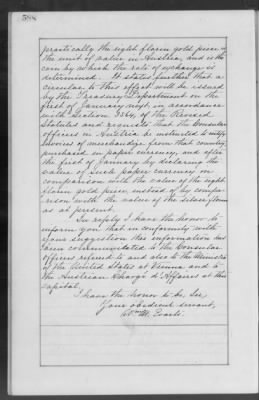 588
practically the eight florin gold piece is
the unit of value in Austria, and is the
coin by which the rate of exchange is
determined. It states further that a
circular to this effect will be issued
by the Treasury Department on the
first of January next, in accordance
with Section 3564, of the Revised
Statutes and requests that the Consular
officers in Austria be instructed to certify
invoices of merchandize from that country,
purchased in paper currency, and after
the first of January by declaring the
value of such paper currency in
comparison with the value of the eight
florin gold piece instead of by compa-
rison with the value of the silver florin
as at present.
In reply I have the honor to
inform you that in conformity with
your suggestion this information has
been communicated to the Consular
Officers referred to and also to the Minister
of the United States at Vienna and to
the Austrian Chargé d'Affaires at this
capital.
I have the honor to be, Sir,
Your obedient servant,
Wm. M. Evarts.